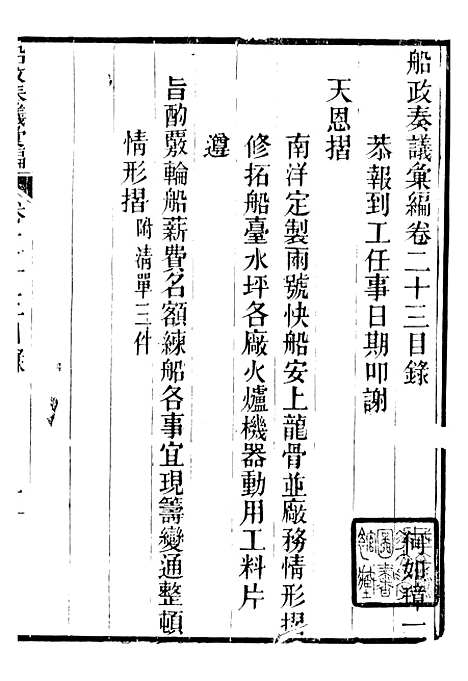 船政奏議彙編卷二十三目錄
何如璋一
恭報到工任事日期叩謝
天恩摺
南洋定製兩號快船安上龍骨並廠務情形摺
修拓船臺水坪各廠火爐機器動用工料片
遵
旨酌覈輪船薪費名額練船各事宜現籌變通整頓
情形摺附清單三件
船政奏議彙編